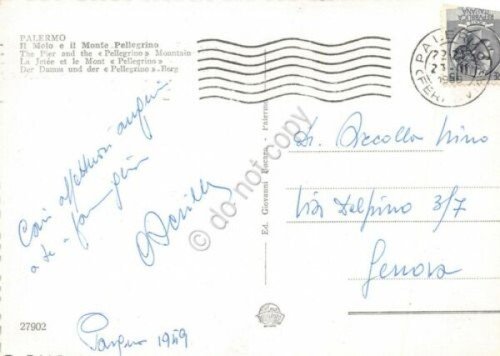 PALERMO
Il Molo e il Monte Pellegrino
The Pier and the «Pellegrino» Mountain
La Jetée et le Mont «Pellegrino»
Der Damm und der «Pellegrino»-Berg
Cari affettuosi auguri
a te e famiglia
27902
1959
Ed. Giovanni - Palermo
do not copy
PALERMO
Nino
Via Delpino 3/7
Genova